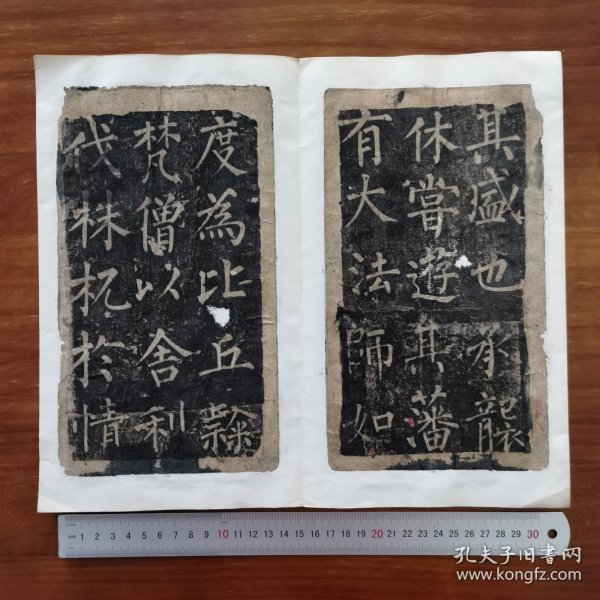 其盛也承襲
休嘗遊其藩
有大法師如
度為比丘隸
梵僧以舍利
伐株杌於情
1 2 3 4 5 6 7 8 9 10 11 12 13 14 15 16 17 18 19 20 21 22 23 24 25 26 27 28 29 30
孔夫子旧书网
www.kongfz.com